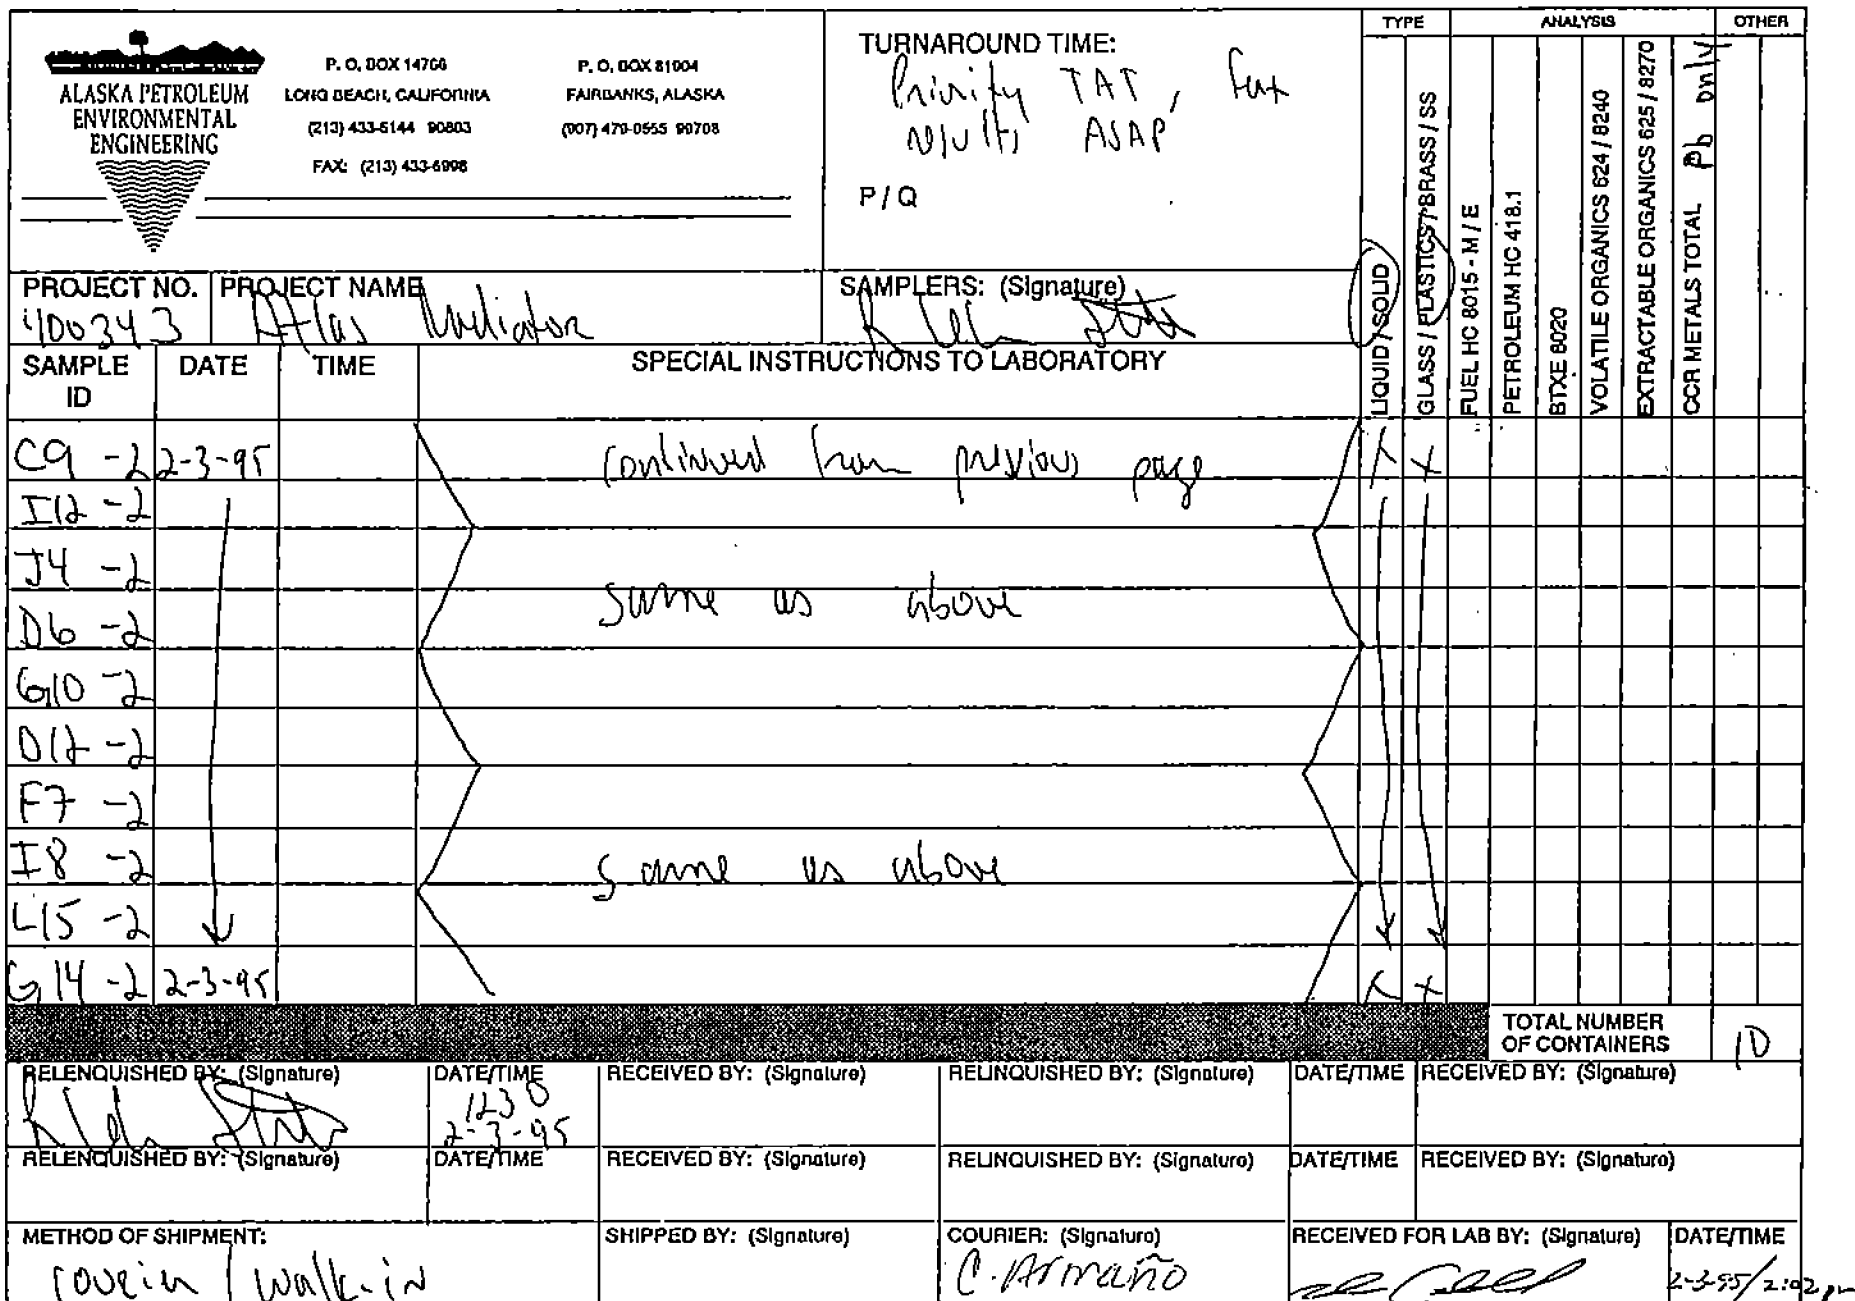 ALASKA PETROLEUM
ENVIRONMENTAL
ENGINEERING
P. O. BOX 14766
LONG BEACH, CALIFORNIA
(213) 433-5144 90803
FAX: (213) 433-6998
P. O. BOX 81904
FAIRBANKS, ALASKA
(907) 479-0555 99708
TURNAROUND TIME:
Priority TAT, fax
results ASAP
P / Q
TYPE
ANALYSIS
OTHER
LIQUID / SOLID
GLASS / PLASTICS / BRASS / SS
FUEL HC 8015 - M / E
PETROLEUM HC 418.1
BTXE 8020
VOLATILE ORGANICS 624 / 8240
EXTRACTABLE ORGANICS 625 / 8270
CCR METALS TOTAL Pb only
PROJECT NO.
400343
PROJECT NAME
Atlas Radiator
SAMPLERS: (Signature)
SAMPLE ID
DATE
TIME
SPECIAL INSTRUCTIONS TO LABORATORY
C9 -2 2-3-95 continued from previous page X X
I12 -2
J4 -2
same as above
D6 -2
G10 -2
D12 -2
F7 -2
I8 -2 same as above
L15 -2
G14 -2 2-3-95 X X
TOTAL NUMBER
OF CONTAINERS
10
RELENQUISHED BY: (Signature)
DATE/TIME
1230
2-3-95
RECEIVED BY: (Signature)
RELINQUISHED BY: (Signature)
DATE/TIME
RECEIVED BY: (Signature)
RELENQUISHED BY: (Signature)
DATE/TIME
RECEIVED BY: (Signature)
RELINQUISHED BY: (Signature)
DATE/TIME
RECEIVED BY: (Signature)
METHOD OF SHIPMENT:
/ walk-in
SHIPPED BY: (Signature)
COURIER: (Signature)
C. Armaño
RECEIVED FOR LAB BY: (Signature)
DATE/TIME
2-3-95/2:02pm